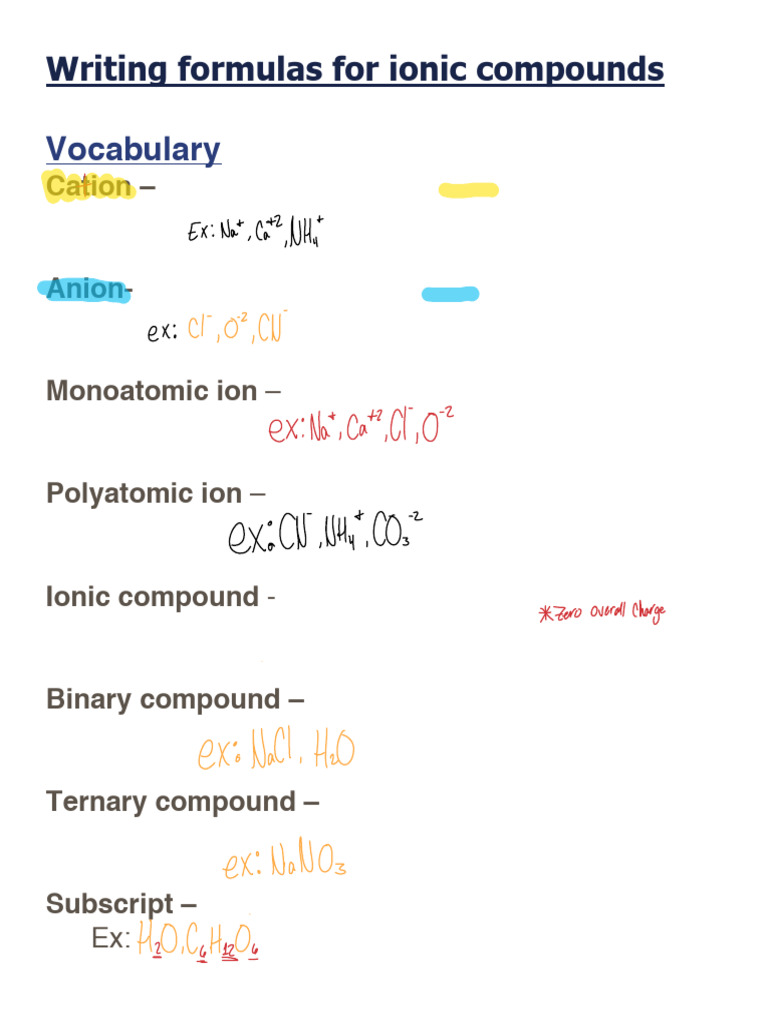 Writing formulas for ionic compounds
Vocabulary
Cation –
Ex: Na⁺, Ca⁺², NH₄⁺
Anion-
ex: Cl⁻, O⁻², CN⁻
Monoatomic ion –
ex: Na⁺, Ca⁺², Cl⁻, O⁻²
Polyatomic ion –
ex: CN⁻, NH₄⁺, CO₃⁻²
Ionic compound -
*Zero overall charge
Binary compound –
ex: NaCl, H₂O
Ternary compound –
ex: NaNO₃
Subscript –
Ex: H₂O, C₆H₁₂O₆